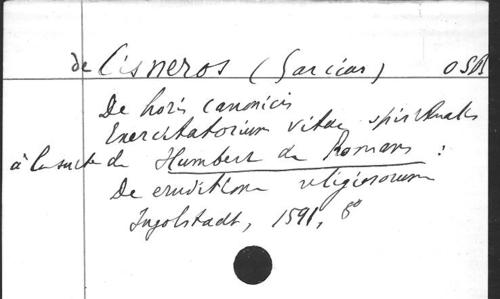 de Cisneros (Garcias) OSB
De horis canonicis
Exercitatorium vitae spiritualis
à la suite de Humbert de Romans :
De eruditione religiosorum
Ingolstadt, 1591, 8°